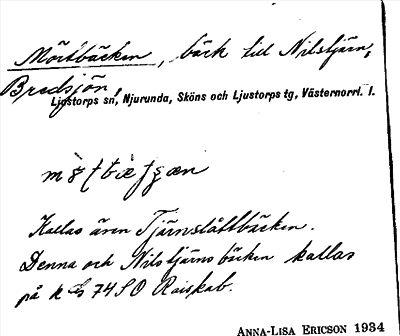 Mörtbäcken, bäck till Nilstjärn,
Bredsjön,
Ljustorps sn, Njurunda, Sköns och Ljustorps tg, Västernorrl. l.
Kallas även Tjärnslåttbäcken.
Denna och Nilstjärnsbäcken kallas
på k
ANNA-LISA ERICSON 1934